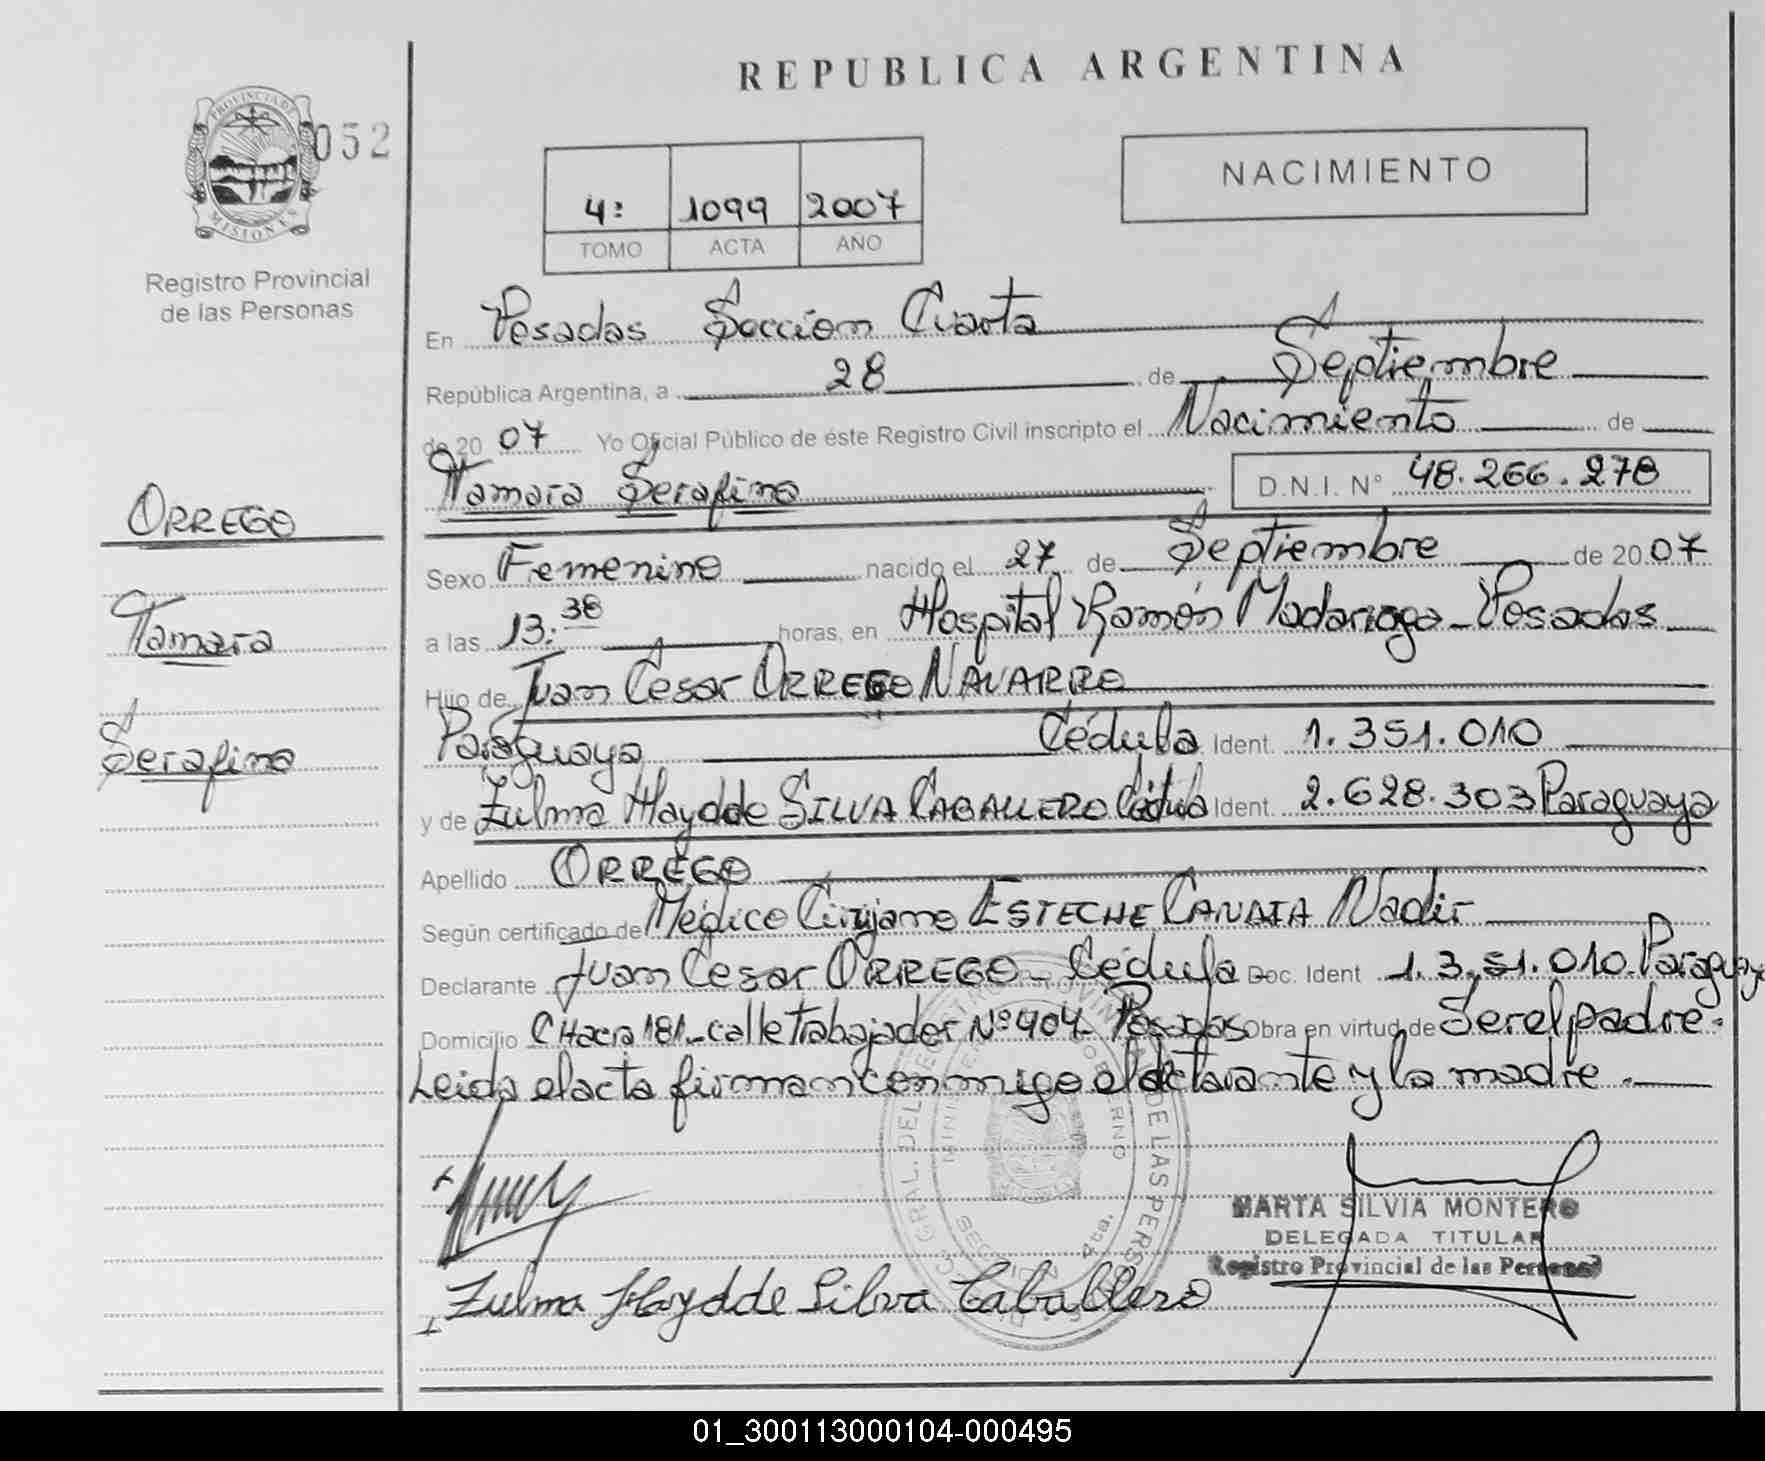 REPUBLICA ARGENTINA
PROVINCIA DE
MISIONES
052
Registro Provincial
de las Personas
4: 1099 2007
TOMO ACTA AÑO
NACIMIENTO
En Posadas Sección Cuarta
República Argentina, a 28 de Septiembre
de 20 07 Yo Oficial Público de éste Registro Civil inscripto el Nacimiento de
Tamara Serafina D.N.I. N° 48.266.278
ORREGO
Tamara
Serafina
Sexo Femenino nacido el 27 de Septiembre de 20 07
a las 13:38 horas, en Hospital Ramón Madariaga - Posadas
Hijo de Juan Cesar ORREGO NAVARRO
Paraguaya Cédula Ident. 1.351.010
y de Zulma Haydde SILVA CABALLERO Cédula Ident. 2.628.303 Paraguaya
Apellido ORREGO
Según certificado de Médico Cirujano ESTECHE Nadir
Declarante Juan Cesar ORREGO - Cédula Doc. Ident 1.351.010 Paraguay
Domicilio CHacra 181 - calle trabajador N° 404 - Posadas Obra en virtud de Ser el padre.
Leida el acta firman conmigo el declarante y la madre.
Zulma Haydde Silva Caballero
MARTA SILVIA MONTERO
DELEGADA TITULAR
Registro Provincial de las Personas
01_300113000104-000495